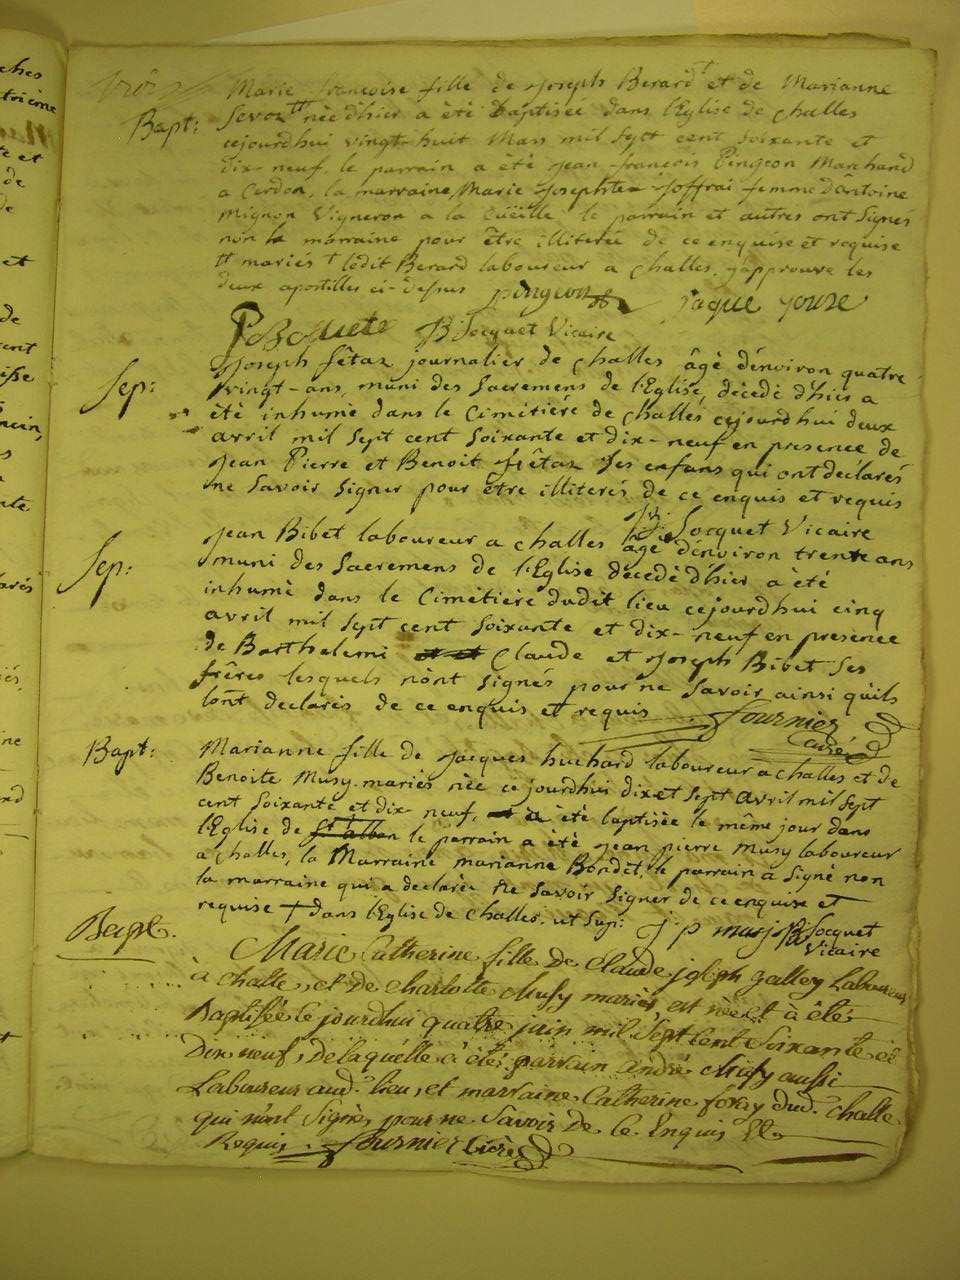 Bapt:
Marie francoise fille de Joseph Berard † et de Marianne
Sevoz tt née d'hier a été Baptisée dans l'Eglise de challes
cejourdhui vingt-huit Mars mil sept cent soixante et
dix-neuf, le parrain a été jean-françois Pingeon Marchand
a Cerdon, la marraine Marie Josephte Joffrai femme d'antoine
Mignon Vigneron a la Cueille, le parrain et autres ont signés
non la marraine pour être illiterée de ce enquise et requise
tt mariés † ledit Berard laboureur a challes. j'approuve les
deux apostilles ci-dessus pingeon jaque joure
Bocquet Vicaire
Sep:
Joseph fêtaz journalier de challes âgé dénviron quatre
vingt-ans, muni des sacremens de l'Eglise, décedé d'hier a
été inhumé dans le Cimétiére de challes cejourdhui deux
avril mil sept cent soixante et dix-neuf en presence de
jean Pierre et Benoit fêtaz ses enfans qui ont déclarés
ne savoir signer pour être illiterés de ce enquis et requis
Bocquet Vicaire
Sep:
jean Bibet laboureur a challes âgé dénviron trente ans
muni des sacremens de l'Eglise décedé d'hier a été
inhumé dans le Cimétiére dudit lieu cejourdhui cinq
avril mil sept cent soixante et dix-neuf en presence
de Barthelemi Claude et joseph Bibet ses
fréres lesquels n'ont signés pour ne savoir ainsi qu'ils
l'ont declarés de ce enquis et requis fournier
Curé
Bapt:
Marianne fille de jacques huchard laboureur a challes et de
Benoite Musy mariés née ce jourdhui dix et sept avril mil sept
cent soixante et dix-neuf, a été baptisée le même jour dans
l'Eglise de St alban le parrain a été jean pierre Musy laboureur
a challes, la Marraine marianne Bondet, le parrain a signé non
la marraine qui a declarée ne savoir signer de ce enquise et
requise † dans l'Eglise de challes. ut sup: j p musy Bocquet
Vicaire
Bapt.
Marie Catherine fille de Claude joseph galley Laboureur
à challe, et de charlotte Musy mariés, est née et à été
Baptisée le jourdhui quatre juin mil sept cent soixante et
Dix neuf, de laquelle à été parrain andré Musy aussi
Laboureur aud. lieu, et marraine Catherine dud. challe
qui n'ont signés pour ne savoir de ce Enquis Et
Requis. fournier Curé